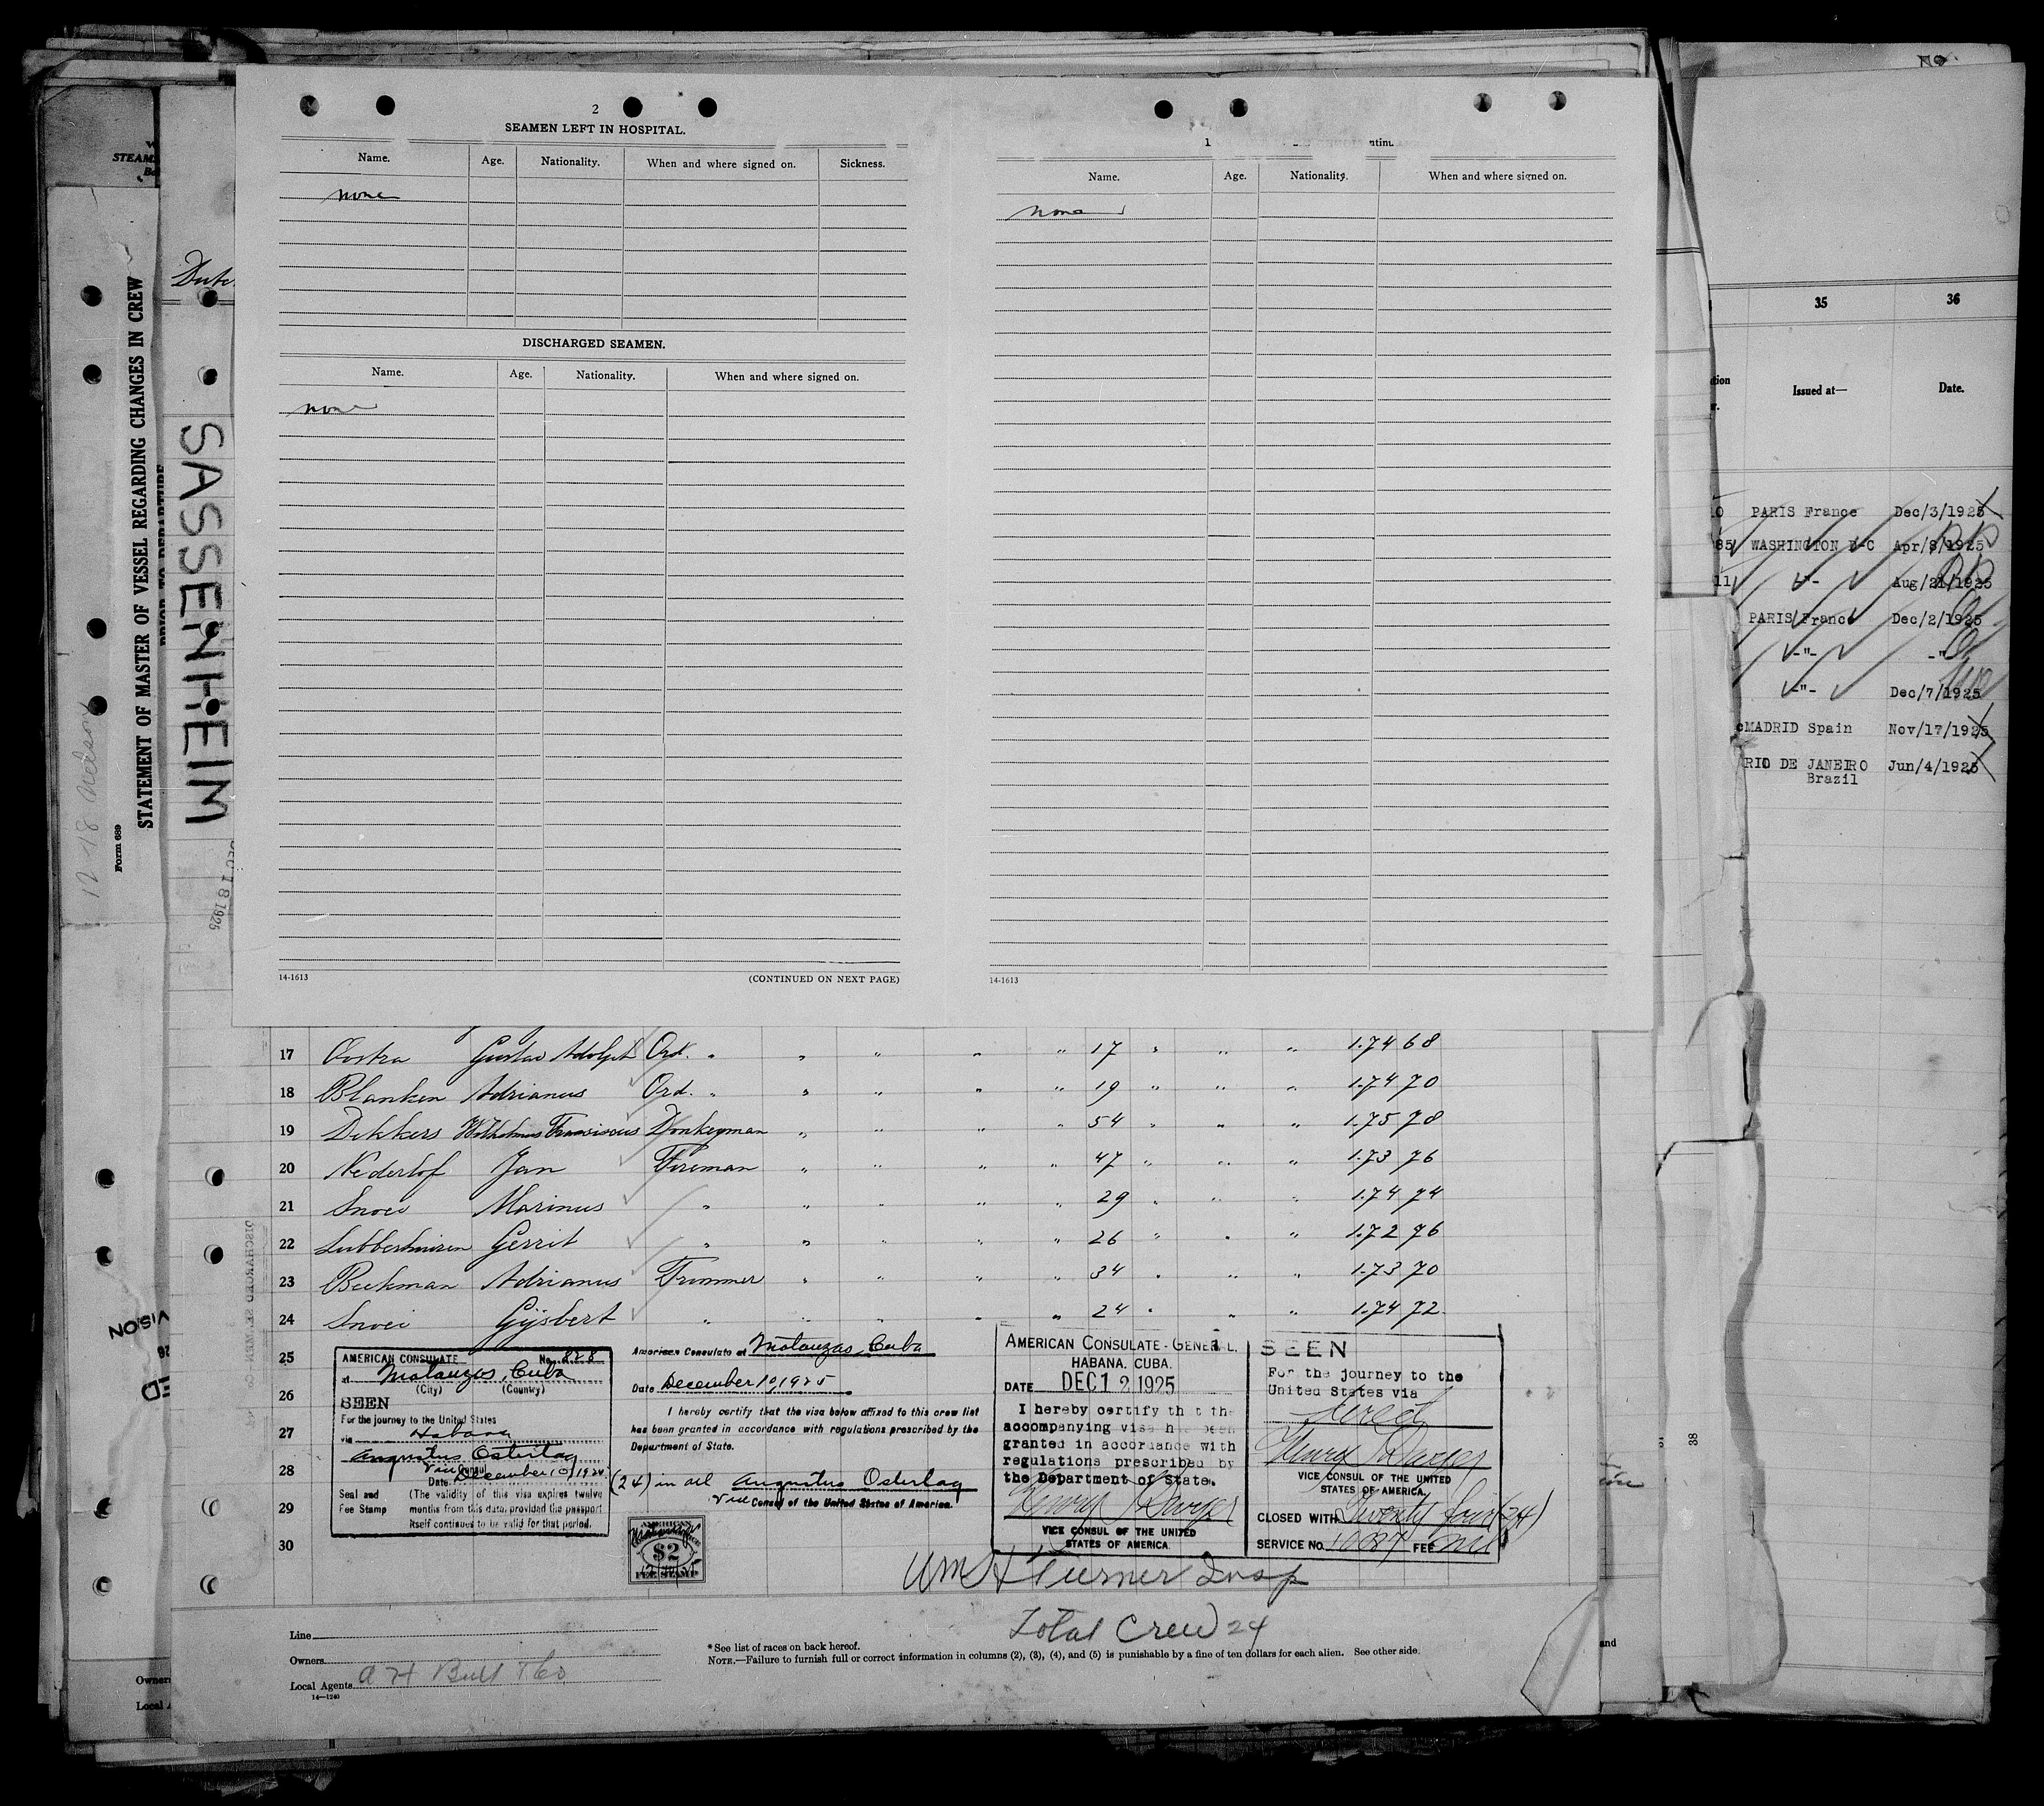 2
SEAMEN LEFT IN HOSPITAL.
Name. Age. Nationality. When and where signed on. Sickness.
none
DISCHARGED SEAMEN.
Name. Age. Nationality. When and where signed on.
none
14-1613 (CONTINUED ON NEXT PAGE)
Name. Age. Nationality. When and where signed on.
none
14-1613
STATEMENT OF MASTER OF VESSEL REGARDING CHANGES IN CREW
PRIOR TO DEPARTURE
Form 689
SASSENHEIM
35 36
Issued at— Date.
PARIS France Dec/3/1925
85 WASHINGTON D-C Apr/8/1925
11 -"- Aug/21/1925
PARIS France Dec/2/1925
-"- -"-
-"- Dec/7/1925
MADRID Spain Nov/17/1925
RIO DE JANEIRO Jun/4/1925
Brazil
17 Oostra Gustav Adolph Ord. " " " " " 17 " " " 1.74 68
18 Blanken Adrianus Ord. " " " " " 19 " " " 1.74 70
19 Dekkers Wilhelmus Franciscus Donkeyman " " " " 54 " " " 1.75 78
20 Nederlof Jan Fireman " " " " 47 " " " 1.73 76
21 Snoei Marinus " " " " " 29 " " " 1.74 74
22 Lubberhuizen Gerrit " " " " " 26 " " " 1.72 76
23 Beekman Adrianus Trimmer " " " " 34 " " " 1.73 70
24 Snoei Gijsbert " " " " " 24 " " " 1.74 72
25
26
27
28
29
30
AMERICAN CONSULATE No. 228
at Matanzas, Cuba
(City) (Country)
SEEN
For the journey to the United States
via Habana
Augustus Ostertag
Vice Consul
Date December 10, 1925
Seal and Fee Stamp
(The validity of this visa expires twelve
months from this date, provided the passport
itself continues to be valid for that period.
American Consulate at Matanzas, Cuba
Date December 10, 1925
I hereby certify that the visa below affixed to this crew list
has been granted in accordance with regulations prescribed by the
Department of State.
(24) in all Augustus Ostertag
Vice Consul of the United States of America.
AMERICAN
$2
FEE STAMP
AMERICAN CONSULATE-GENERAL,
HABANA, CUBA.
DATE DEC 12 1925
I hereby certify that the
accompanying visa has been
granted in accordance with
regulations prescribed by
the Department of State.
VICE CONSUL OF THE UNITED
STATES OF AMERICA.
SEEN
For the journey to the
United States via
direct
VICE CONSUL OF THE UNITED
STATES OF AMERICA.
CLOSED WITH Twenty four (24)
SERVICE NO. 10087 FEE nil
Wm H Turner Insp
Total Crew 24
Line
Owners
Local Agents A H Bull & Co
14—1240
* See list of races on back hereof.
NOTE.—Failure to furnish full or correct information in columns (2), (3), (4), and (5) is punishable by a fine of ten dollars for each alien. See other side.
38